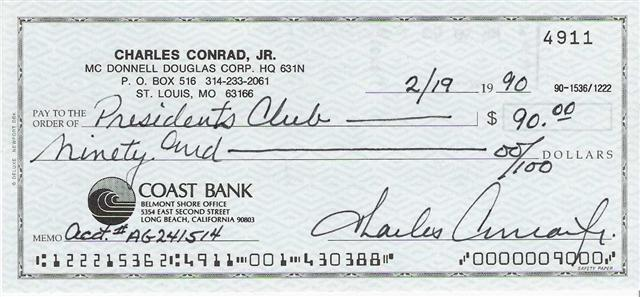 4911
CHARLES CONRAD, JR.
MC DONNELL DOUGLAS CORP. HQ 631N
P. O. BOX 516 314-233-2061
ST. LOUIS, MO 63166
2/19 19 90 90-1536/1222
PAY TO THE
ORDER OF Presidents Club $ 90.00
Ninety and 00/100 DOLLARS
COAST BANK
BELMONT SHORE OFFICE
5354 EAST SECOND STREET
LONG BEACH, CALIFORNIA 90803
MEMO Acct.# AG241514 Charles Conrad Jr.
⑆122215362⑆4911⑈001⑈430388⑈ ⑈0000009000⑈
SAFETY PAPER
© DELUXE NEWPORT